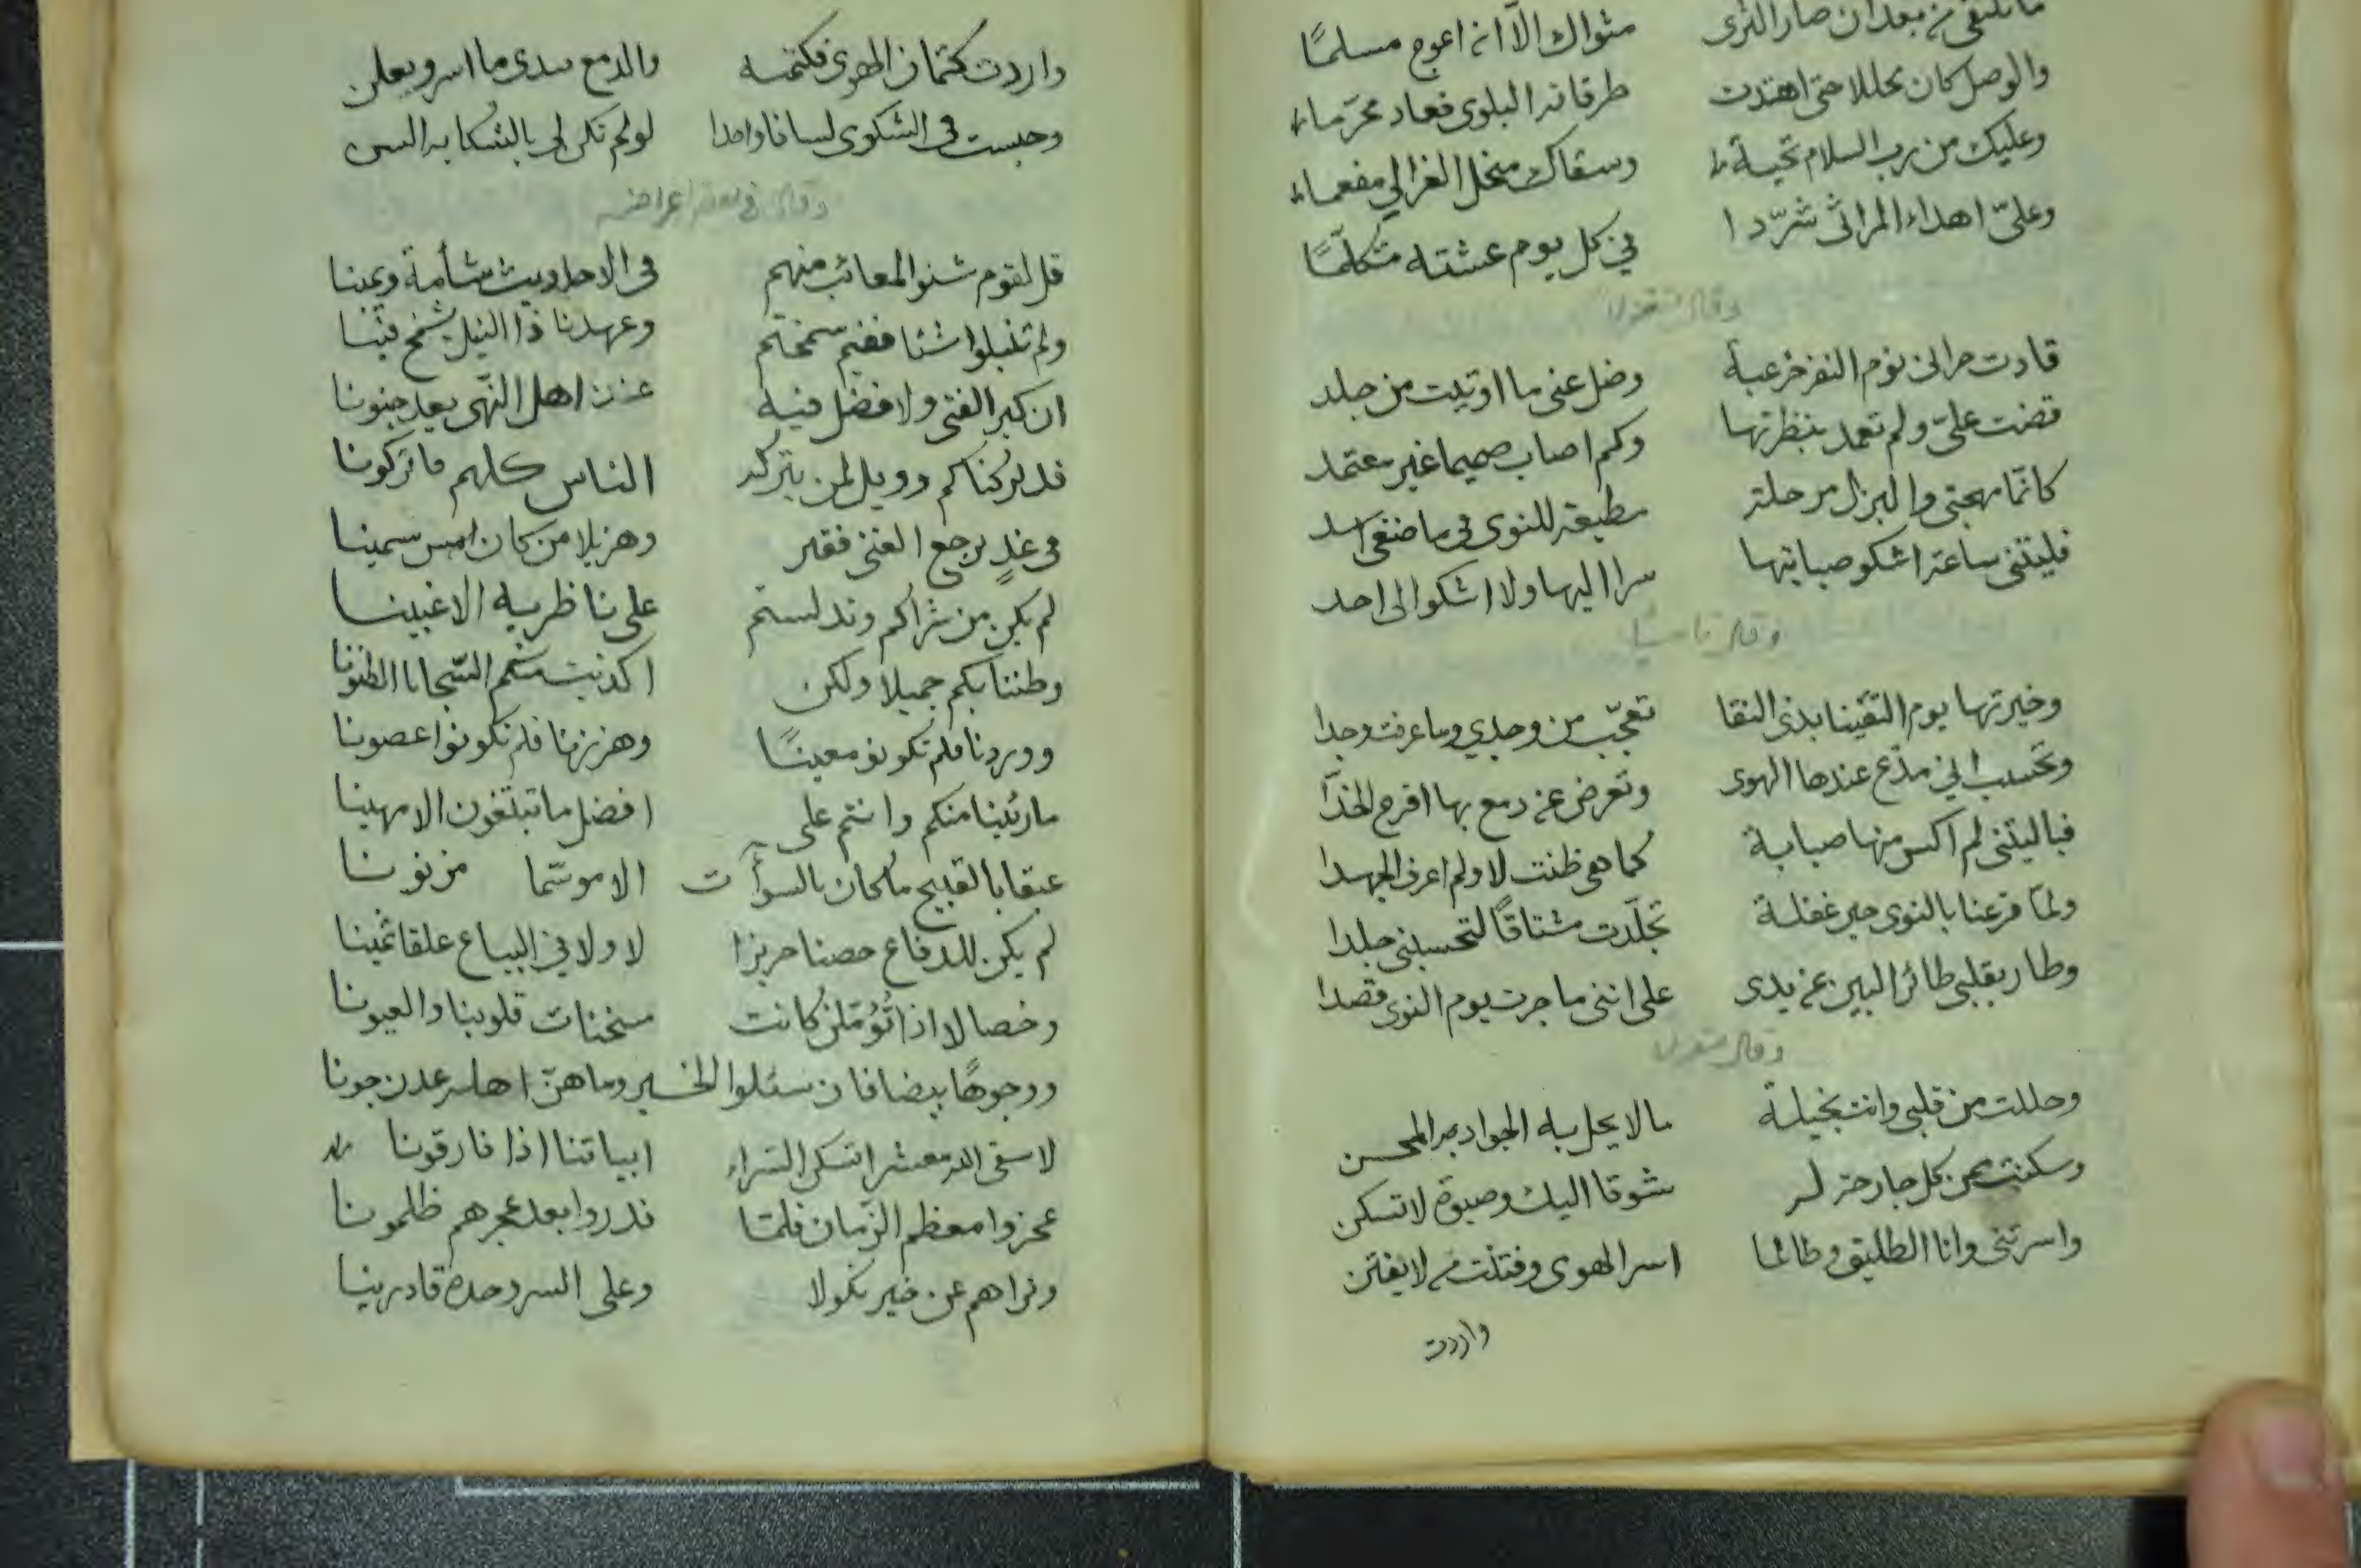 ما نلتقي من بعد ان صار الثرى مثواك الّا ان اعوج مسلمًا
والوصل كان محللا حتى اهتدت طرقاته البلوى فعاد محرّما
وعليك من رب السلام تحية وسقاك منحل الغزالي مفعما
وعليّ اهداء المراثي شرّدا في كل يوم عشته متكلّمًا
وقال متغزلا
قادت حرانى نؤم النفر خرعبة وضل عني ما اوتيت من جلد
قضت عليّ ولم تعمد بنظرتها وكم اصاب صميما غير معتمد
كانّما مهجتي والبزل مرحلة مطيعة للنوى في ماضغي اسد
فليتني ساعة اشكو صبابتها سرا اليها ولا اشكو الى احد
وقال ناسيبا
وخيرتها يوم التقينا بذي النقا تعجّب من وجدي وما عرفت وجدا
وتحسب اني مدّع عندها الهوى وتعرض عن دمع بها اقرح الخدّا
فيا ليتني لم اكس منها صبابة كما هي ظنت لا ولم اعرف الجهدا
ولمّا فزعنا بالنوى حين غفلة تجلّدت مشتاقًا لتحسبني جلدا
وطار بقلبي طائر البين عن يدي على انني ما جرت يوم النوى قصدا
وقال متغزلا
وحللت من قلبي وانت بخيلة ما لا يحل به الجواد المحسن
وسكنت من كل جارحة لي شوقا اليك وصبوة لا تسكن
واسرتني وانا الطليق وطالما اسر الهوى وفتنت من لا يفتن
واردت
واردت كتمان الهوى فكتمته والدمع يبدي ما اسر ويعلن
وحبست في الشكوى لسانا واحدا لو لم تكن لي بالشكاية السن
وقال في بعض اغراضه
قل لقوم شنوا المعائب منهم في الاحاديث شأمة ويمينا
ولم تنبلوا شئا ففيم شمختم وعهدنا ذا النبل يشمخ فينا
ان كبر الفتى ولا فضل فيه عند اهل النّهى يعد جنونا
قد تركناكم وويل لمن يترك الناس كلهم ما تركونا
في غدٍ يرجع الغنى فقير وهزيلا من كان امس سمينا
لم يكن من شراكم وقد لستم على ناظريه الا غبينا
وظننا بكم جميلا ولكن اكذبت منكم السّجايا الظنونا
ووردنا فلم تكونو معينًا وهززنا فلم تكونوا غصونا
ما رئينا منكم وانتم على افضل ما تبتغون الا مهينا
عبقا بالقبيح ما كان بالسوأت الا موسّما مزنونا
لم يكن للدفاع حصنا حريزا لا ولا في البياع علقا ثمينا
وخصالا اذا تُؤمّلن كانت مسخنات قلوبنا والعيونا
ووجوهًا بيضا فان سئلوا الخير وما هنّ اهله عدن جونا
لا سقى الله معشرا تسكن السّراء ابياتنا اذا فارقونا
عجزوا معظم الزّمان فلمّا قدروا بعد عجزهم ظلمونا
ونراهم عن خير نكولا وعلى السر وحده قادرينا